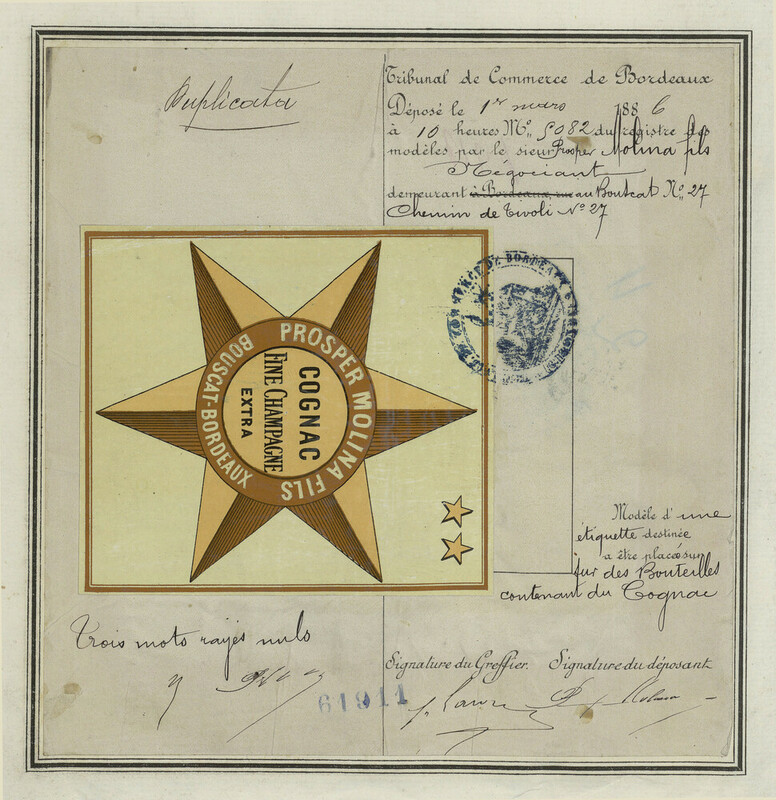 Duplicata
Tribunal de Commerce de Bordeaux
Déposé le 1er mars 1886
à 10 heures No. 5082 du registre des
modèles par le sieur Prosper Molina fils
Négociant
demeurant à Bordeaux, rue au Bouscat No. 27
Chemin de Tivoli No 27
PROSPER MOLINA FILS
BOUSCAT-BORDEAUX
COGNAC
FINE CHAMPAGNE
EXTRA
DE BORDEAUX
Modèle d'une
étiquette destinée
a être placée sur
sur des Bouteilles
contenant du Cognac
Trois mots rayés nuls
Signature du Greffier. Signature du déposant
61911